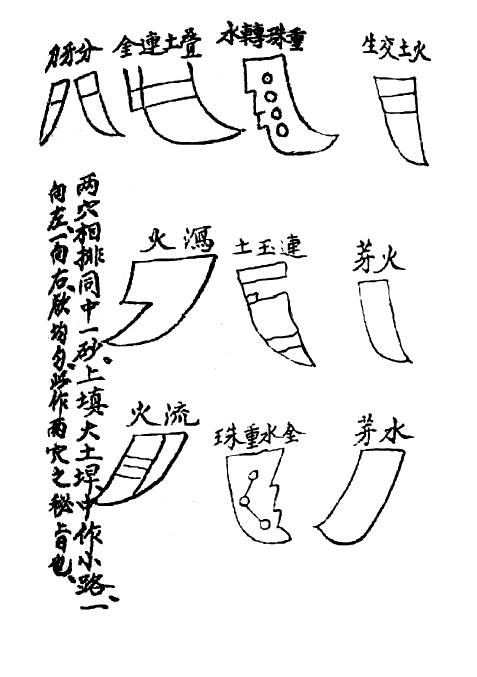 火土交生
重珠轉水
疊土連金
分牙刀
火芽
連玉土
瀉火
水芽
金水重珠
流火
两穴相排同中一砂、上填大土埕、中作小路、一
向左、一向右、欲均匀、此作两穴之秘旨也、